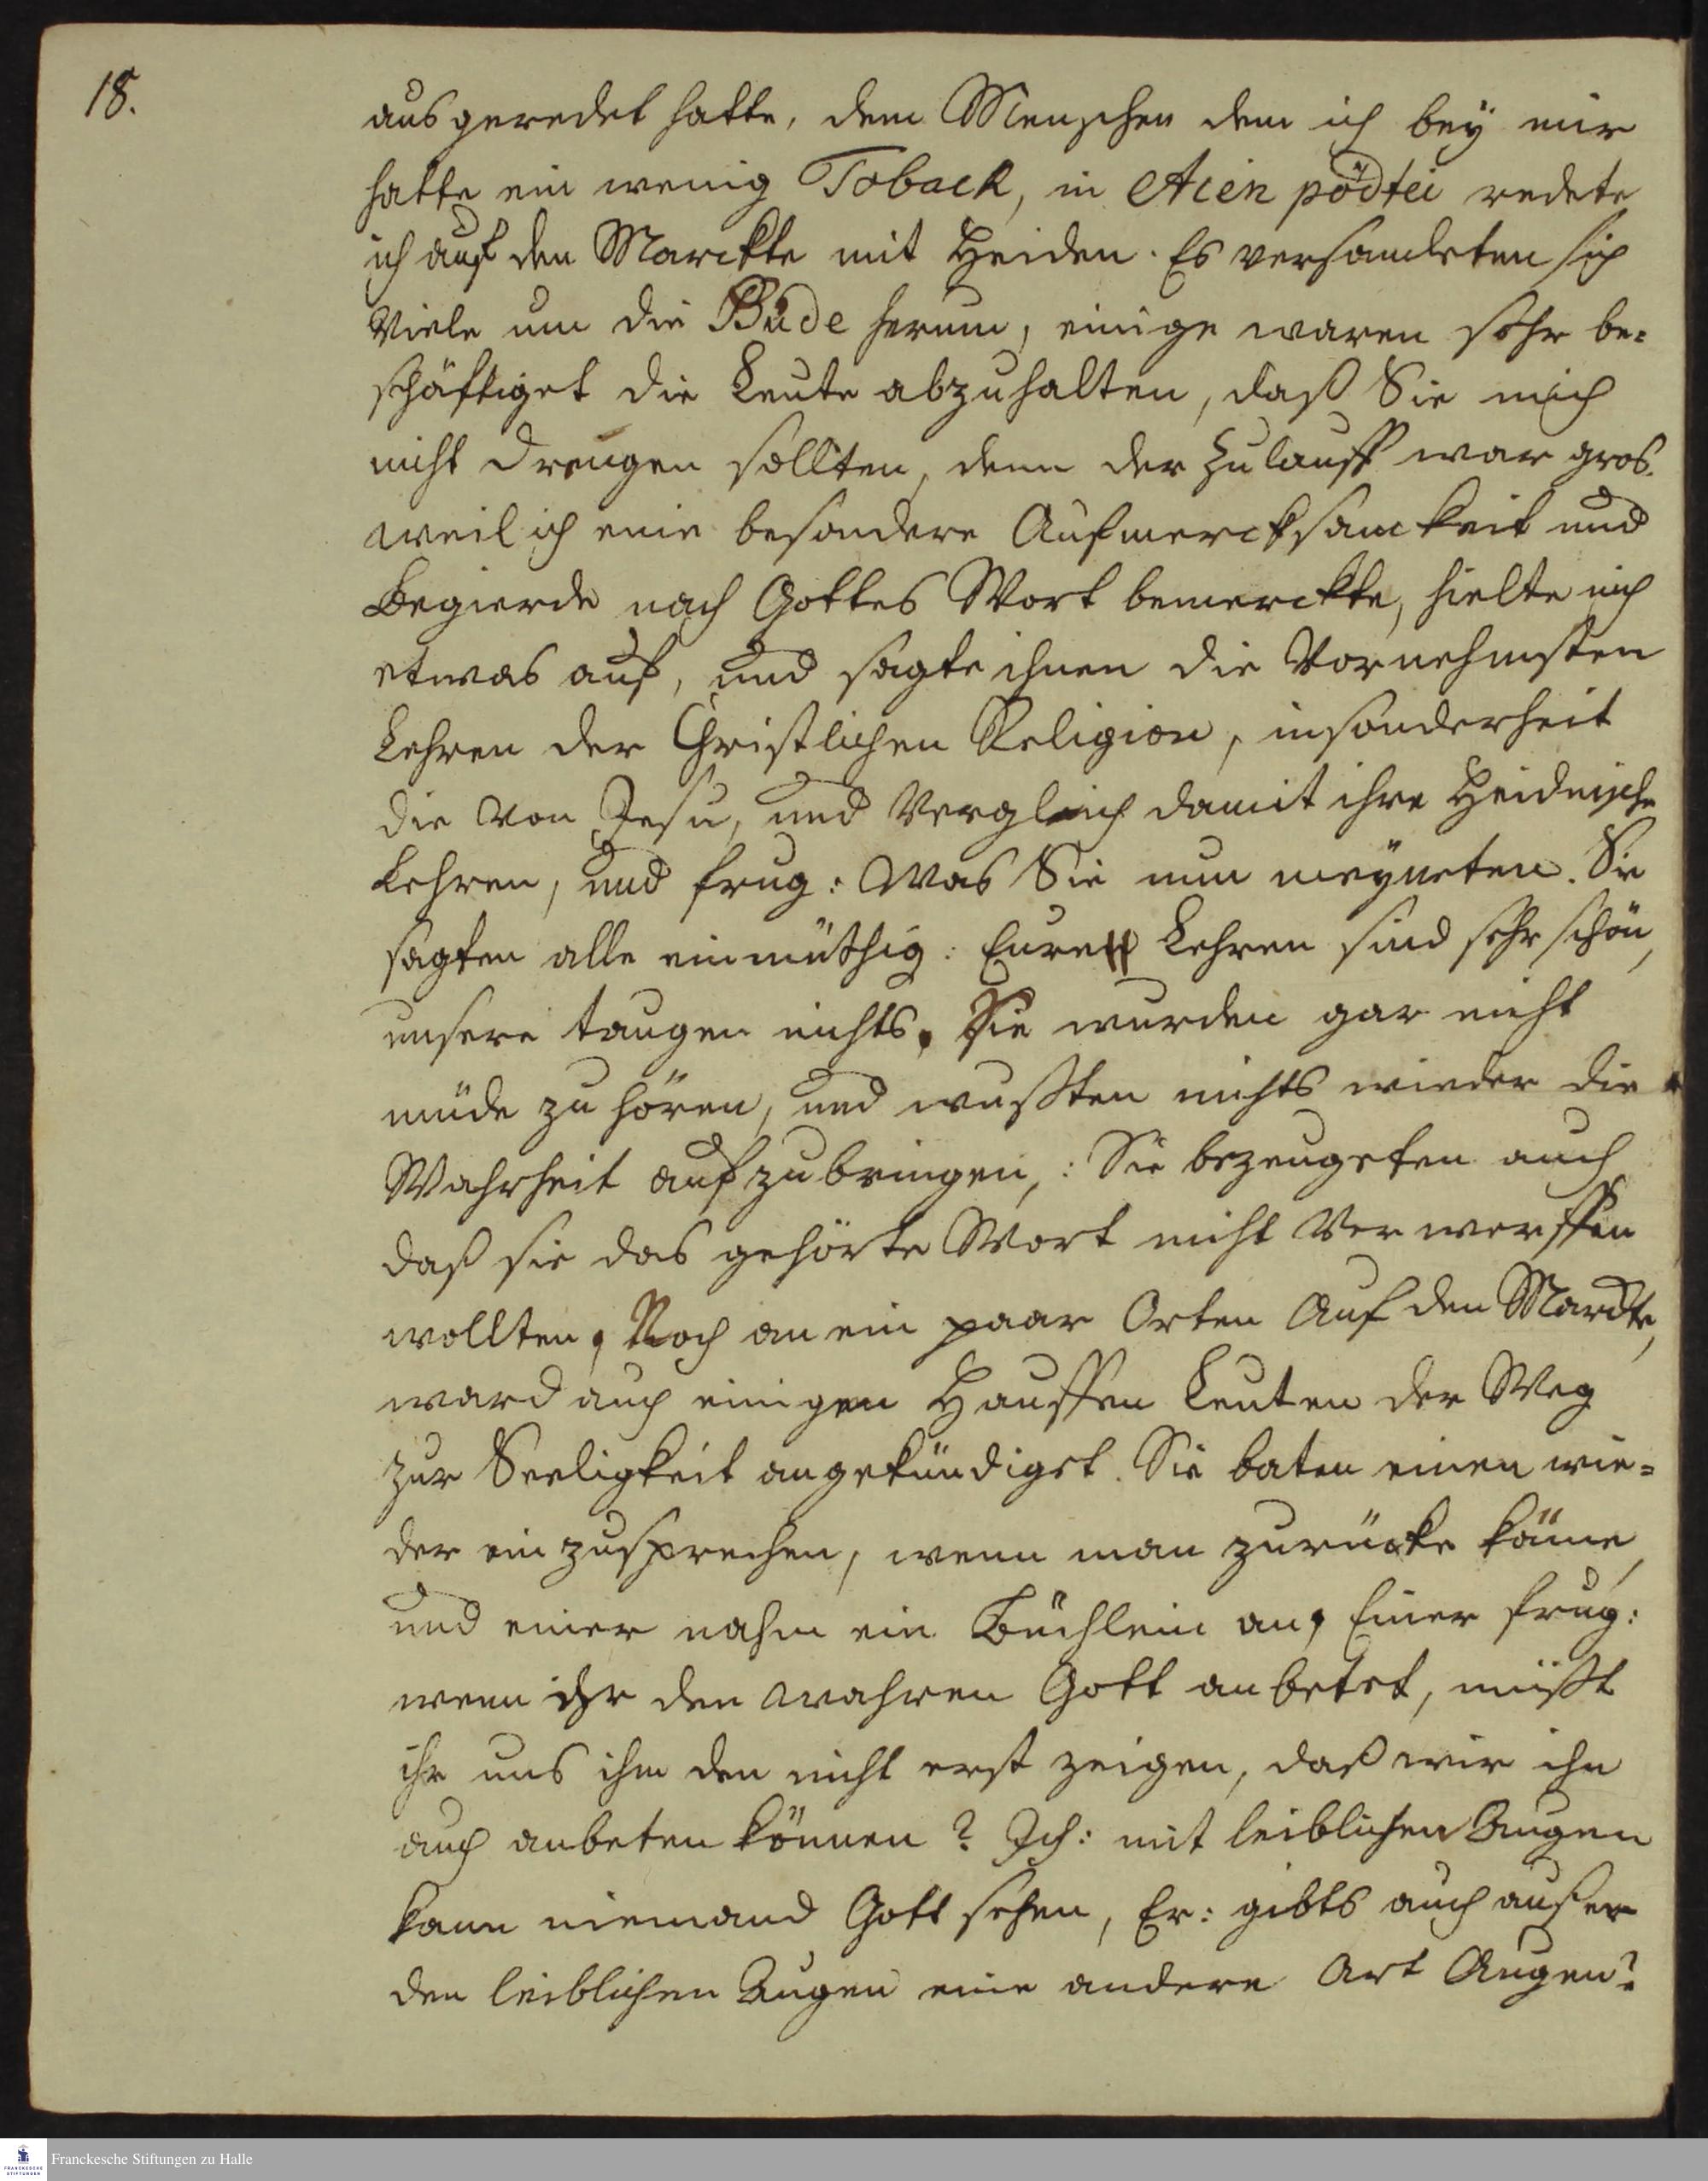 18.
ausgeredet hatte, dem Menschen dem ich bey mir
hatte ein wenig Toback, in Acien pödtei redete
ich auf den Marckte mit Heiden. Es versamleten sich
Viele um die Bude herum, einige waren sehr be-
schäftiget die Leute abzuhalten, daß Sie mich
nicht drengen sollten, denn der Zulauff war gros.
weil ich eine besondere Aufmercksamkeit und
Begierde nach Gottes Wort bemerckte, hielte mich
etwas auf, und sagte ihnen die Vornehmsten
Lehren der Christlichen Religion, insonderheit
die von Jesu, und Vergleich damit ihre Heidnische
Lehren, und frug: Was Sie nun meyneten. Sie
sagten alle einmüthig: Eure Lehren sind sehr schön,
unsere taugen nichts. Sie wurden gar nicht
müde zu hören, und wusten nichts wieder die
Wahrheit aufzubringen,: Sie bezeugeten auch
daß sie das gehörte Wort nicht Verwerffen
wollten, Noch an ein paar Orten Auf den Marckte,
ward auch einigen Hauffen Leuten der Weg
zur Seeligkeit angekündiget. Sie baten einen wie-
der einzusprechen, wenn man zurücke käme,
und einer nahm ein Büchlein an, Einer frug:
wenn ihr den wahren Gott anbetet, müst
ihr uns ihm den nicht erst zeigen, daß wir ihn
auch anbeten können? Ich: mit leiblichen Augen
kann niemand Gott sehen, Er: gibts auch außer
den leiblichen Augen eine andere Art Augen?
FRANCKESCHE STIFTUNGEN
Franckesche Stiftungen zu Halle